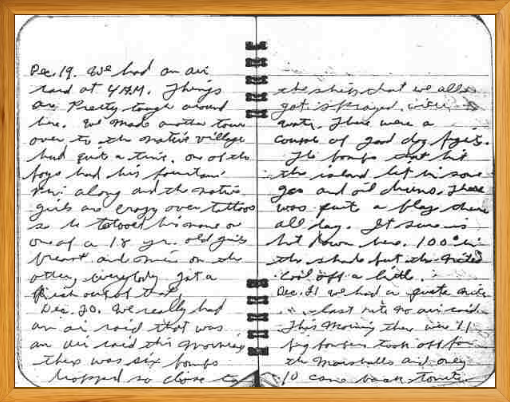 Dec. 19. We had an air
raid at 4 A.M. Things
are Pretty tough around
here. We made another tour
over to the native village
had quit a time. one of the
boys had his fountain
pen along and the native
girls are crazy over tattoos
so he tatooed his name on
one of a 18 yr. old girls
breast and one on the
other everybody got a
kick out of that
Dec. 20. We really had
an air raid that was
an air raid this morning
there was six bombs
dropped so close to
the ships that we all
got sprayed with
water. There were a
couple of good dog fights.
The bombs that hit
the island hit in some
gas and oil drums. There
was quit a blaze there
all day. It sure is
hot down here. 100° in
the shade but the nites
cool off a little.
Dec. 21 we had a quite nite
last nite no air raid.
This morning there were 11
big bombers took off for
the Marshalls and only
10 came back tonite.